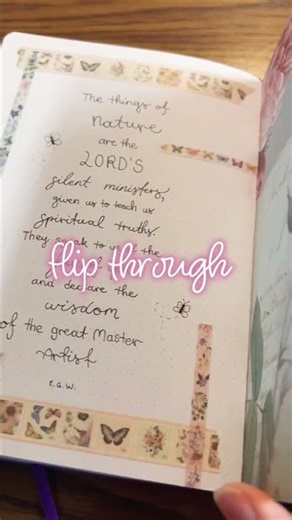 The things of
nature
are the
LORD'S
silent ministers,
given us to teach us
spiritual truths.
They speak to us the
flip through
and declare the
wisdom
of the great Master
Artist
E.G.W.